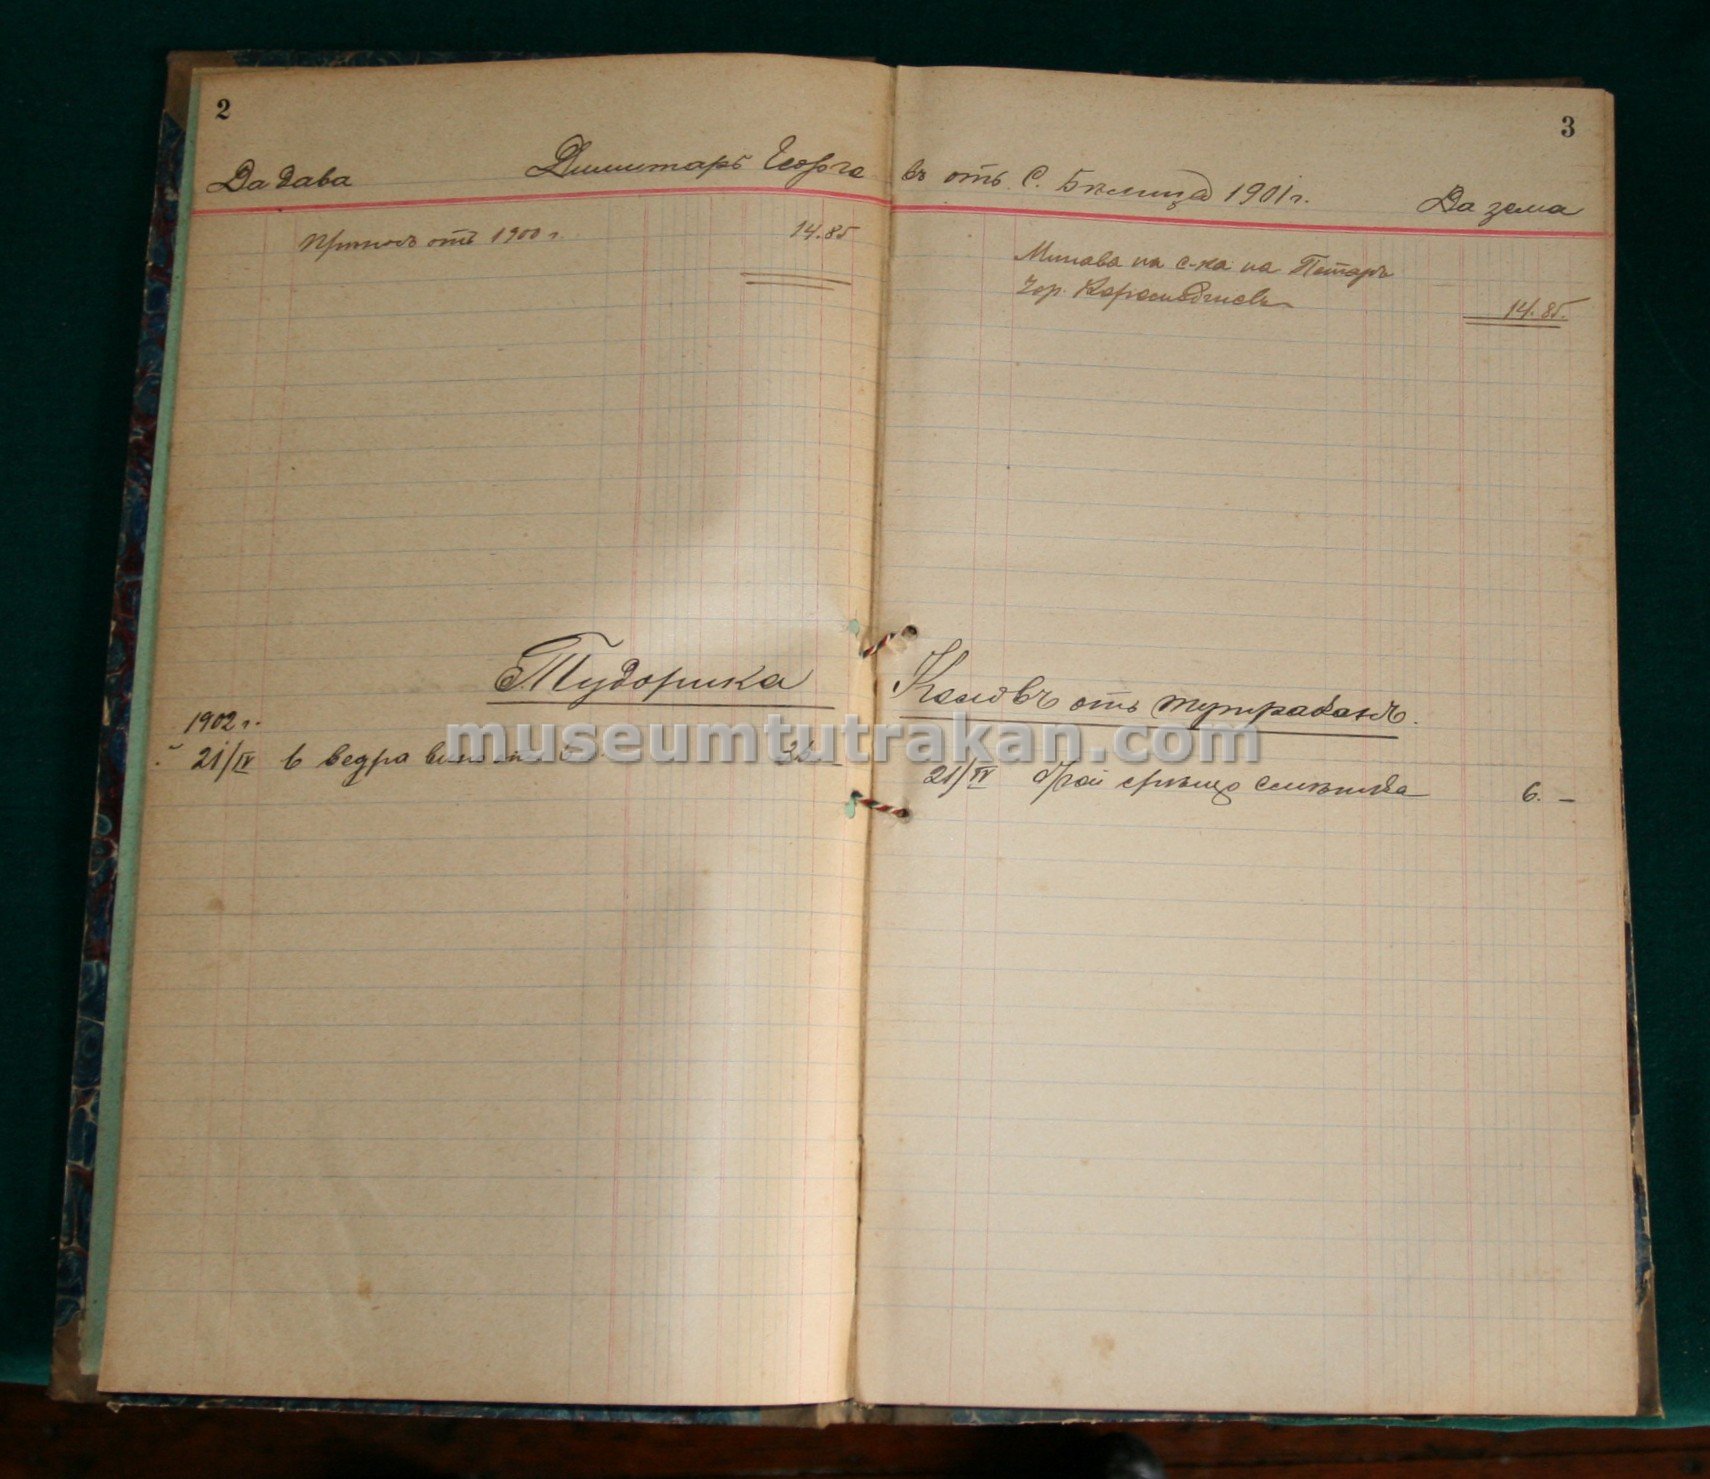 2
3
Да дава
Димитаръ Георге въ отъ С. Бѣлица 1901 г.
Да зема
Приносъ отъ 1900 г. 14.85
Минава на с-ка на Петаръ
Гор. 14.85.
Тудорика Коловъ отъ Тутраканъ.
1902 г.
21/IV 6 ведра вино
21/IV срѣщо 6. —
museumtutrakan.com